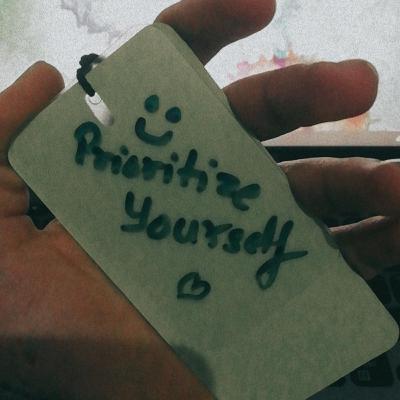 Prioritize
Yourself